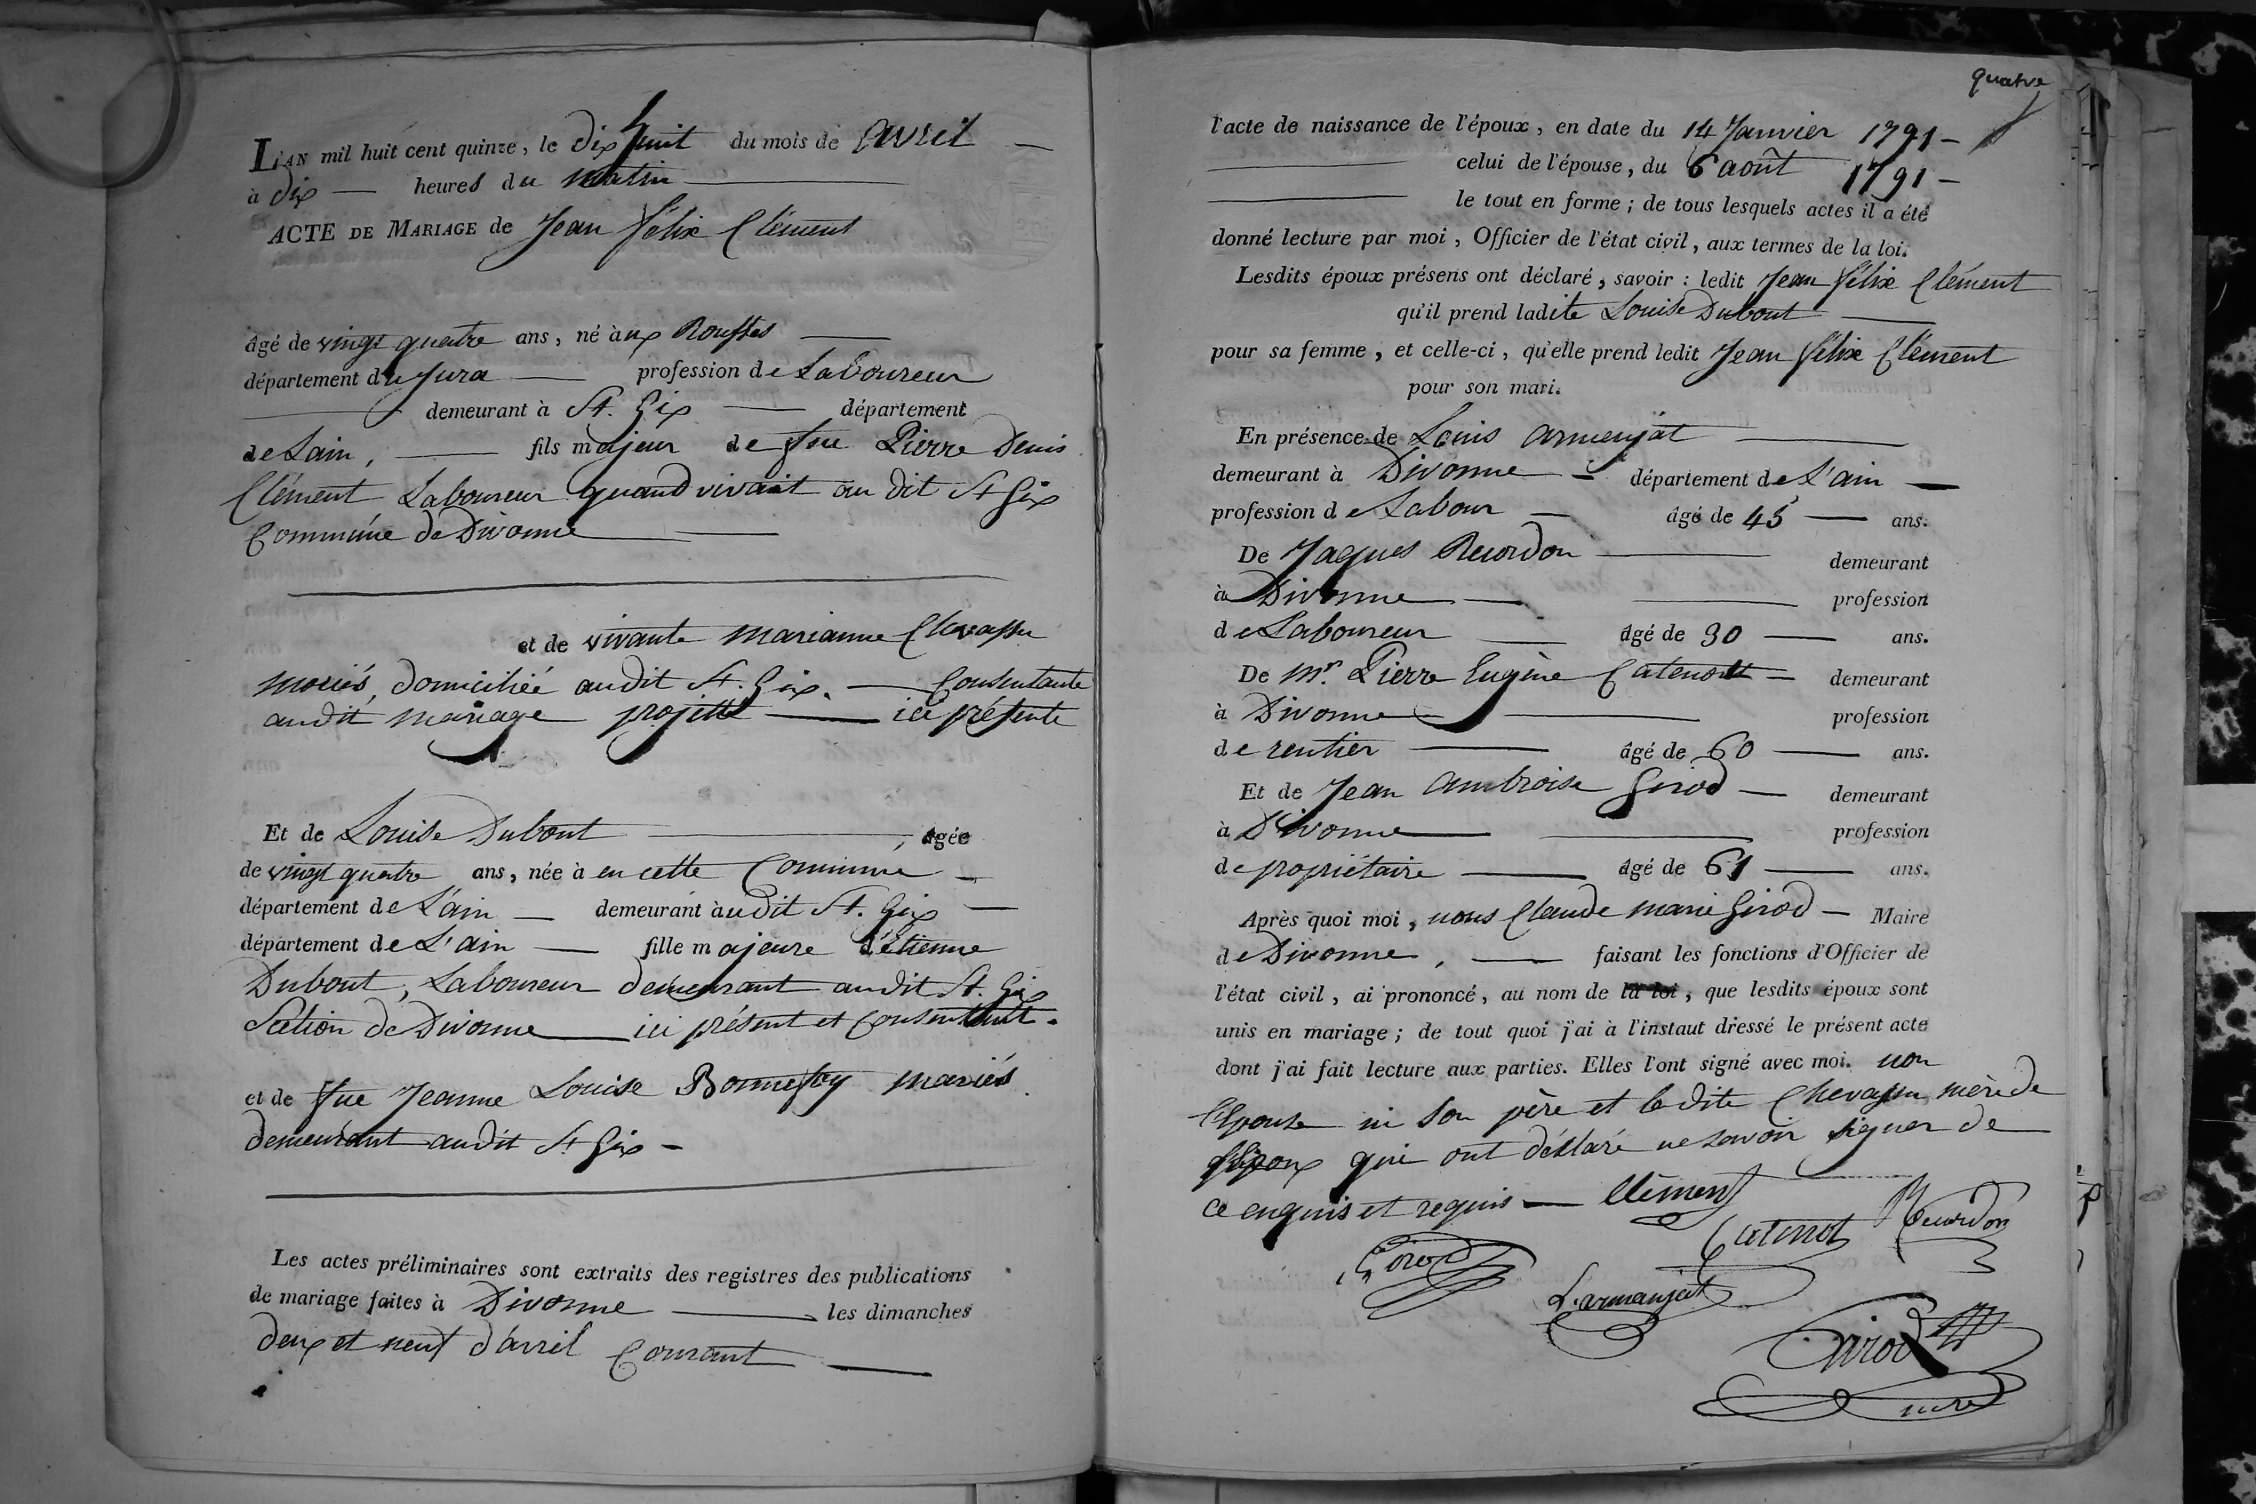 L'AN mil huit cent quinze, le dix huit du mois de avril
à dix heures du matin
ACTE DE MARIAGE de Jean Félix Clément
âgé de vingt quatre ans, né à ux Rousses
département du Jura profession de Laboureur
demeurant à St. Gix département
de Lain, fils majeur de feu Pierre Denis
Clément Laboureur quand vivait au dit St Gix
Commune de Divonne
et de vivante marianne Chevassu
mariés, domiciliée audit St. Gix. Consentante
audit mariage projetté ici présente
Et de Louise Dubout, âgée
de vingt quatre ans, née à en cette Commune
département de L'ain demeurant à udit St. Gix
département de L'ain fille majeure d'étienne
Dubout, Laboureur demeurant audit St. Gix
Section de Divonne ici présent et consentant.
et de feue Jeanne Louise Bonnefoy mariés
demeurant audit St Gix
Les actes préliminaires sont extraits des registres des publications
de mariage faites à Divonne les dimanches
deux et neuf d'avril Courant
quatre
l'acte de naissance de l'époux, en date du 14 Janvier 1791
celui de l'épouse, du 6 août 1791
le tout en forme; de tous lesquels actes il a été
donné lecture par moi, Officier de l'état civil, aux termes de la loi.
Lesdits époux présens ont déclaré, savoir : ledit Jean félix Clément
qu'il prend ladite Louise Dubout
pour sa femme, et celle-ci, qu'elle prend ledit Jean félix Clément
pour son mari.
En présence de Louis armenjat
demeurant à Divonne département de L'ain
profession de Labour âgé de 45 ans.
De Jaques Recordon demeurant
à Divonne profession
de Laboureur âgé de 30 ans.
De mr. Pierre Eugène Catenott demeurant
à Divonne profession
de rentier âgé de 60 ans.
Et de Jean ambroise Girod demeurant
à Divonne profession
de propriétaire âgé de 61 ans.
Après quoi moi, nous Claude marie Girod Maire
de Divonne, faisant les fonctions d'Officier de
l'état civil, ai prononcé, au nom de la loi, que lesdits époux sont
unis en mariage; de tout quoi j'ai à l'instaut dressé le présent acte
dont j'ai fait lecture aux parties. Elles l'ont signé avec moi. non
l'Epouse ni son père et ladite Chevassu mère de
l'Epoux qui ont déclaré ne savoir signer de
ce enquis et requis Clément
Catenot Recordon
Girod
L. armanjat
Girod
mre